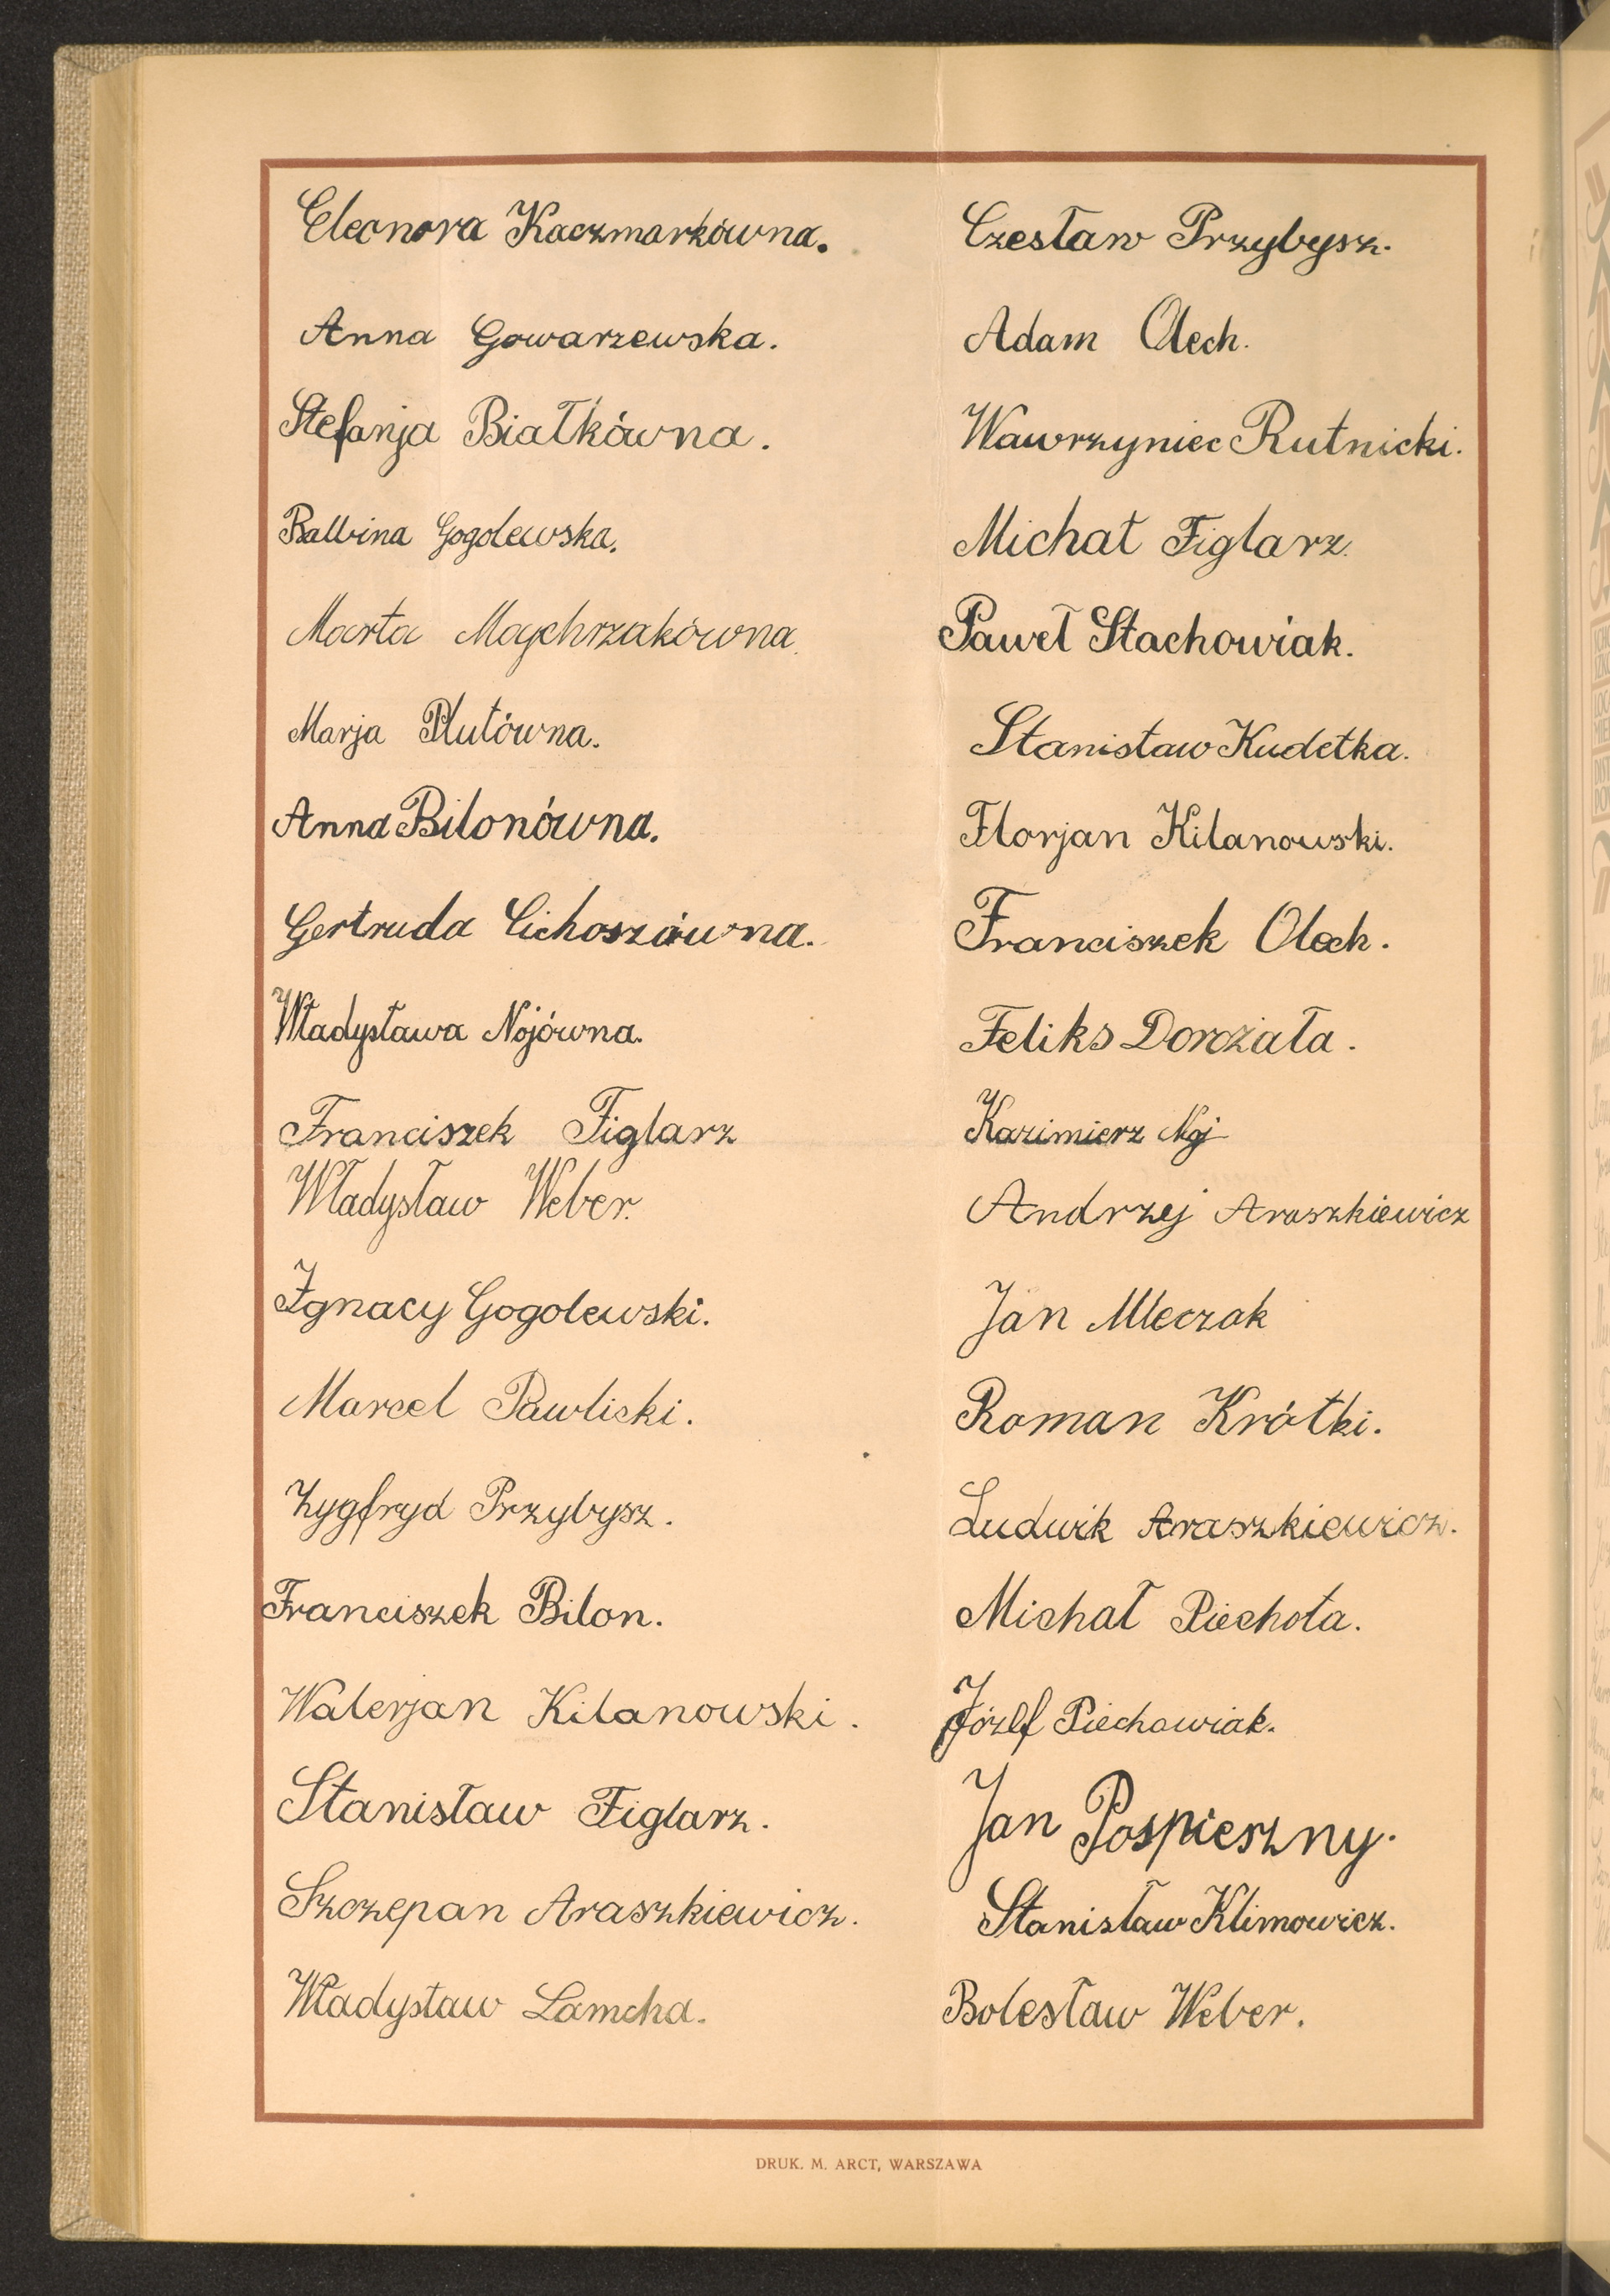 Eleonora Kaczmarkówna.
Anna Gowarzewska.
Stefanja Białkówna.
Balbina Gogolewska.
Marta Maychrzakówna.
Marja Plutówna.
Anna Bilonówna.
Gertruda Cichoszówna.
Władysława Nojówna.
Franciszek Figlarz
Władysław Weber.
Ignacy Gogolewski.
Marcel Pawlicki.
Zygfryd Przybysz.
Franciszek Bilon.
Walerjan Kilanowski.
Stanisław Figlarz.
Szczepan Araszkiewicz.
Władysław Lamcha.
Czesław Przybysz.
Adam Olech.
Wawrzyniec Rutnicki.
Michał Figlarz.
Paweł Stachowiak.
Stanisław Kudełka.
Florjan Kilanowski.
Franciszek Olech.
Feliks Dorożała.
Kazimierz Noj
Andrzej Araszkiewicz
Jan Mleczak
Roman Krótki.
Ludwik Araszkiewicz.
Michał Piechota.
Józef Piechowiak.
Jan Pospieszny.
Stanisław Klimowicz.
Bolesław Weber.
DRUK. M. ARCT, WARSZAWA